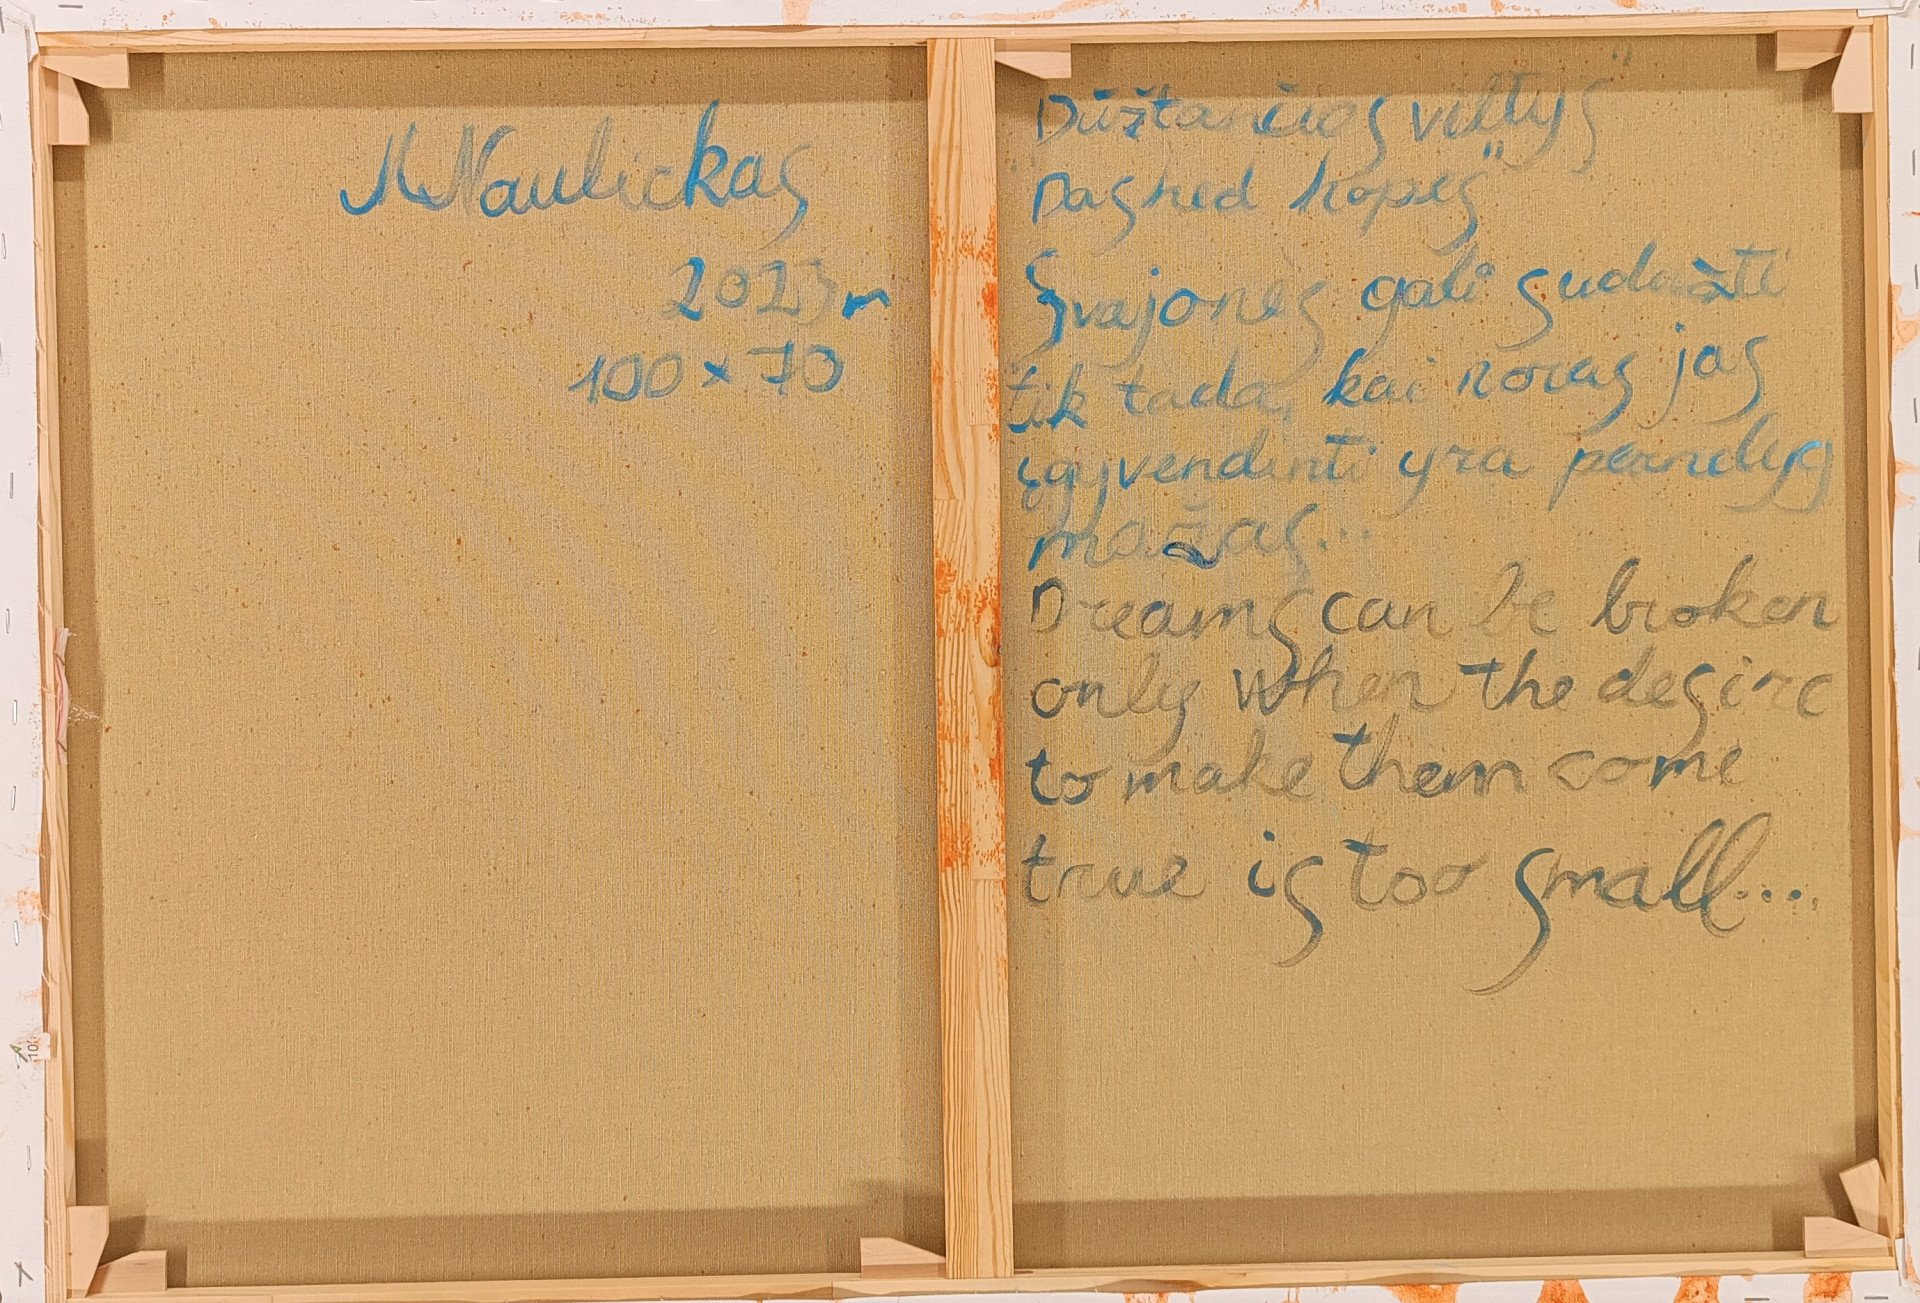 M Naulickas
2023m
100 x 70
Dūžtančios viltys"
Dashed hopes"
Svajones gali sudaužti
tik tada, kai noras jas
įgyvendinti yra pernelyg
mažas...
Dreams can be broken
only when the desire
to make them come
true is too small...